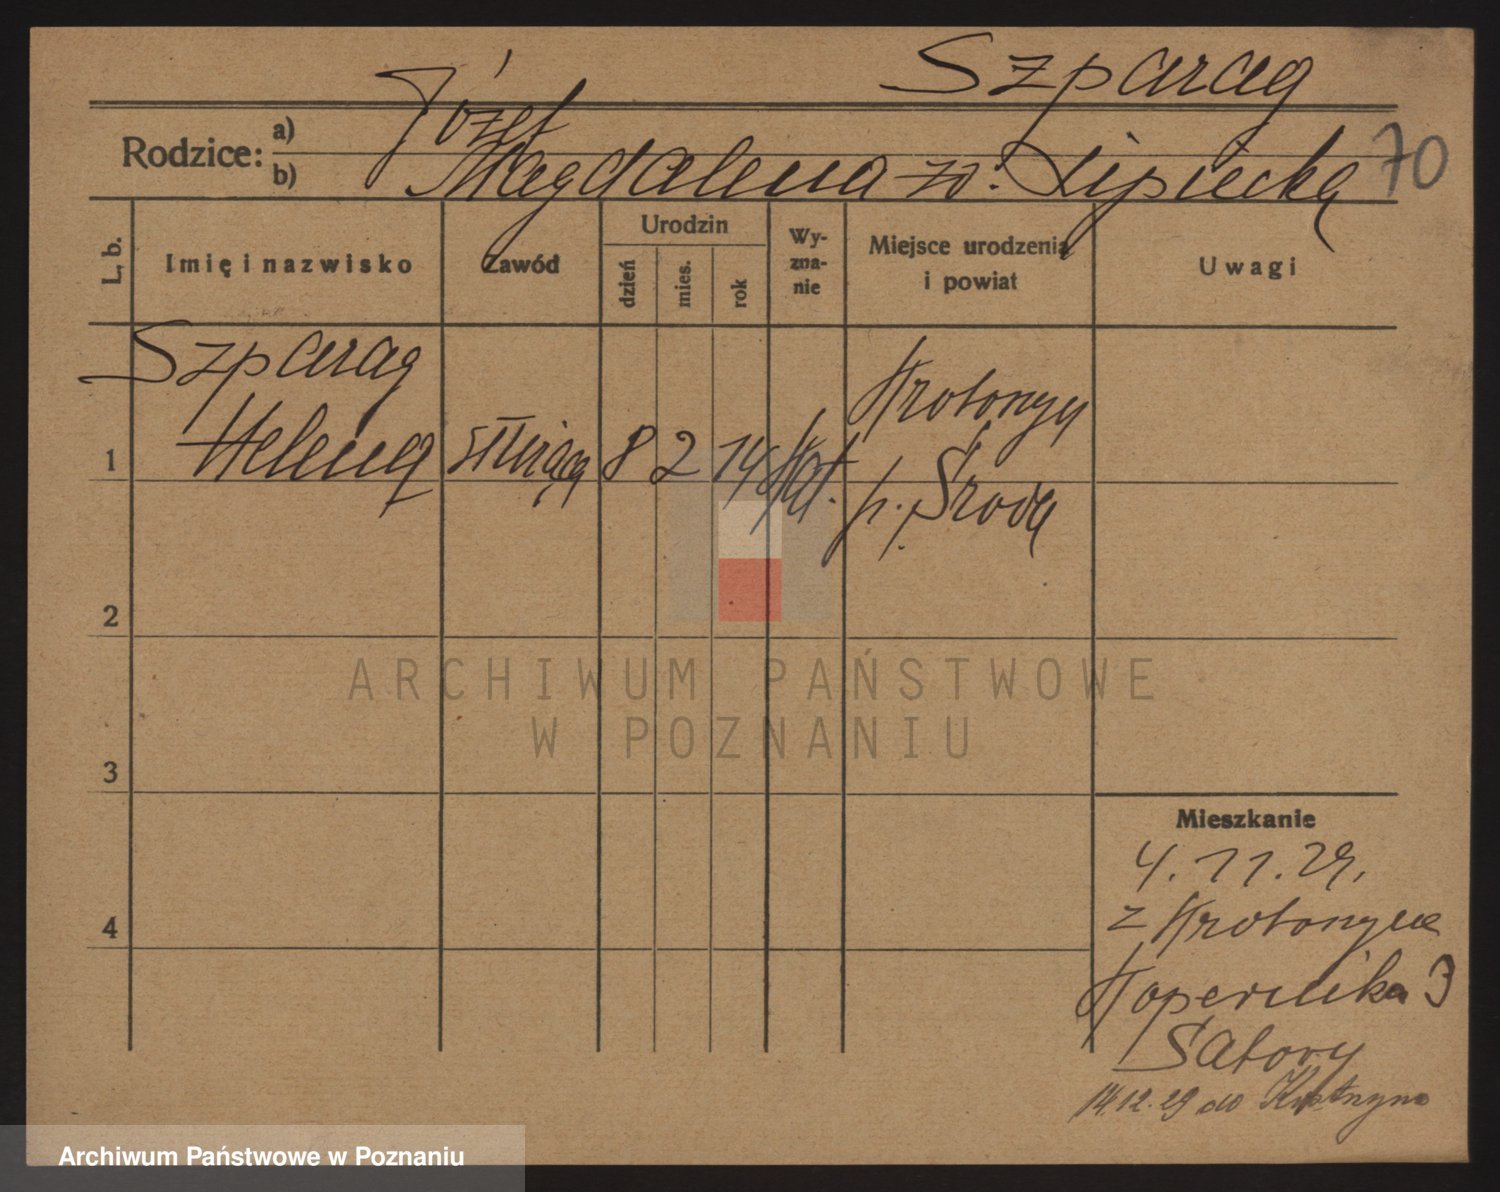 Szparag
70
Rodzice: a) Józef
b) Magdalena zd: Lipiecka
L. b.
Imię i nazwisko
Zawód
Urodzin
dzień
mies.
rok
Wy-
zna-
nie
Miejsce urodzenia
i powiat
Uwagi
Szparag
1 Helena służąca 8 2 14 Kat. Krotony
p. Środa
2
3
4
Mieszkanie
4.11.29.
z
Kopernika 3
14.12.29 do
ARCHIWUM PAŃSTWOWE
W POZNANIU
Archiwum Państwowe w Poznaniu